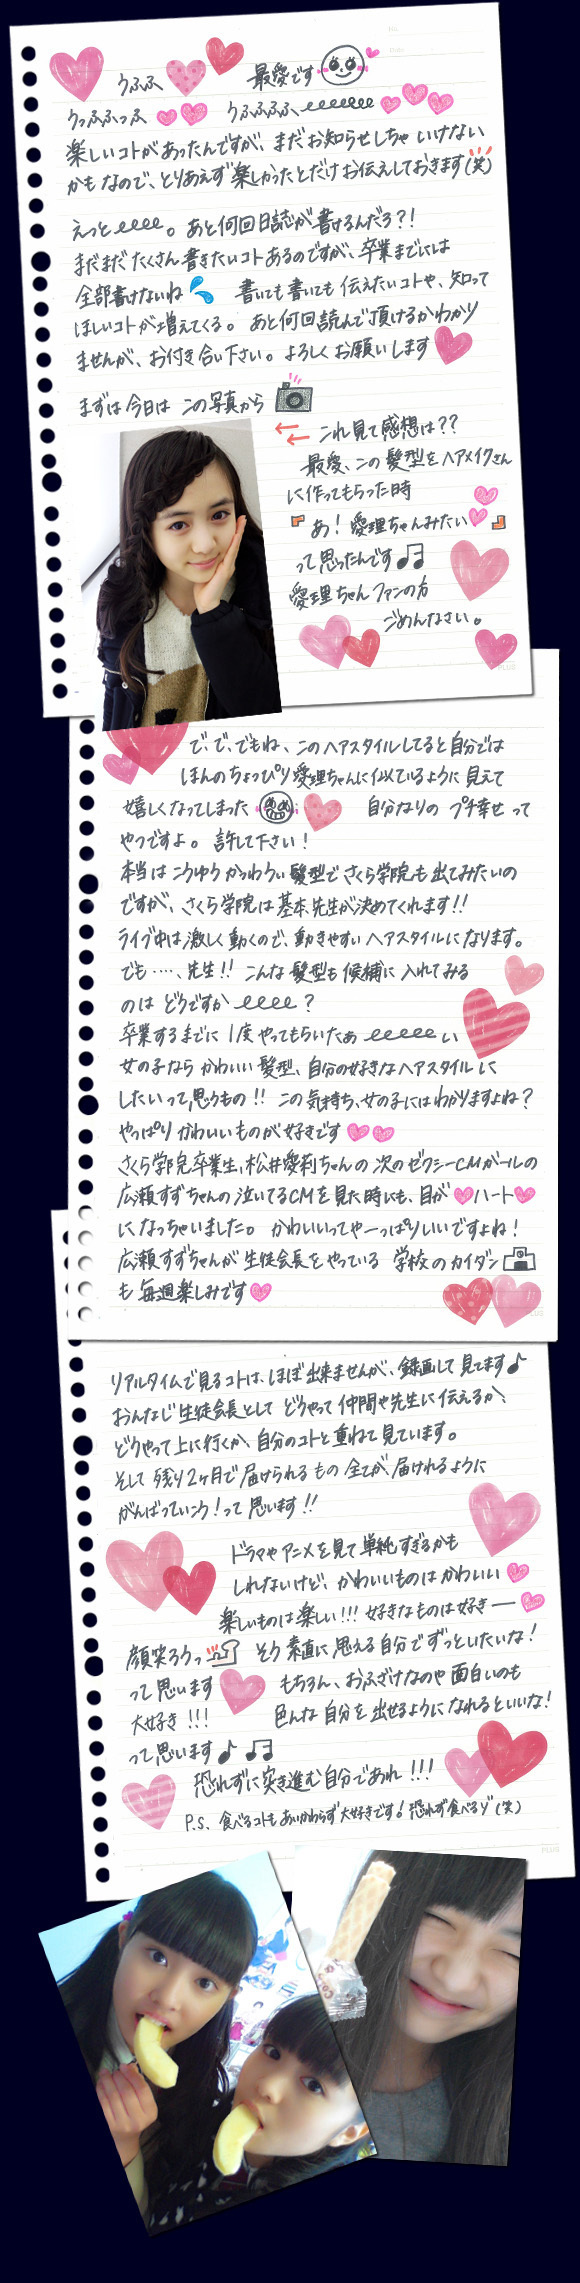 うふふ 最愛です
うっふふっふ うふふふふ
楽しいコトがあったんですが、まだお知らせしちゃいけない
かもなので、とりあえず楽しかったとだけお伝えしておきます(笑)
えっと 。あと何回日誌が書けるんだろ?!
まだまだたくさん書きたいコトあるのですが、卒業までには
全部書けないね 書いても書いても伝えたいコトや、知って
ほしいコトが増えてくる。あと何回読んで頂けるかわかり
ませんが、お付き合い下さい。よろしくお願いします
まずは今日はこの写真から
これ見て感想は??
最愛、この髪型をヘアメイクさん
に作ってもらった時
『あ!愛理ちゃんみたい』
って思ったんです♫
愛理ちゃんファンの方
ごめんなさい。
PLUS
で、で、でもね、このヘアスタイルしてると自分では
ほんのちょっぴり愛理ちゃんに似ているように見えて
嬉しくなってしまった 自分なりのプチ幸せって
やつですよ。許して下さい!
本当はこうゆうかぅわうぃ髪型でさくら学院も出てみたいの
ですが、さくら学院は基本、先生が決めてくれます!!
ライブ中は激しく動くので、動きやすいヘアスタイルになります。
でも……、先生!!こんな髪型も候補に入れてみる
のはどうですか ?
卒業するまでに1度やってもらいたぁ い
女の子ならかわいい髪型、自分の好きなヘアスタイルに
したいって思うもの!!この気持ち、女の子にはわかりますよね?
やっぱりかわいいものが好きです
さくら学院卒業生、松井愛莉ちゃんの次のゼクシーCMガールの
広瀬すずちゃんの泣いてるCMを見た時にも、目が ハート
になっちゃいました。かわいいってやーっぱりいいですよね!
広瀬すずちゃんが生徒会長をやっている 学校のカイダン
も毎週楽しみです
PLUS
リアルタイムで見るコトは、ほぼ出来ませんが、録画して見てます♪
おんなじ生徒会長としてどうやって仲間や先生に伝えるか、
どうやって上に行くか、自分のコトと重ねて見ています。
そして残り2ヶ月で届けられるもの全てが届けれるように
がんばっていこう!って思います!!
ドラマやアニメを見て単純すぎるかも
しれないけど、かわいいものはかわいい
楽しいものは楽しい!!!好きなものは好きー
顔笑ろうっ そう素直に思える自分でずっといたいな!
って思います もちろん、おふざけなのや面白いのも
大好き!!! 色んな自分を出せるようになれるといいな!
って思います♪♫
恐れずに突き進む自分であれ!!!
P.S. 食べるコトもあいかわらず大好きです!恐れず食べるゾ(笑)
PLUS